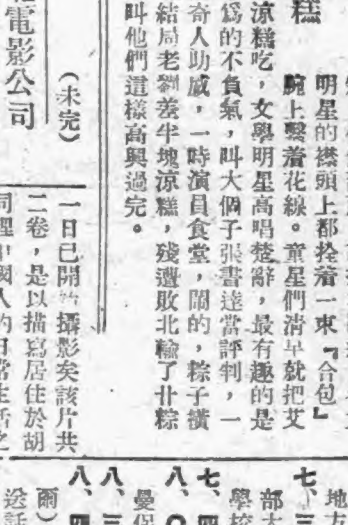 糕
明星的襟頭上都拴着一束『合包』
腕上繫着花線。童星們淸早就把艾
涼糕吃,女學明星高唱楚辭,最有趣的是
爲的不負氣,叫大個子張書達當評判,一
奇人助威,一時演員食堂,鬧的,粽子橫
結局老劉差半塊涼糕,殘遭敗北輸了廿粽
叫他們這樣高興過完。
(未完)
電影公司
一日已開 攝影矣該片共
二卷,是以描寫居住於胡
地方
七、三
部大
學校
七、四
八、〇
曼保
八、三
八、四
爾)
送話